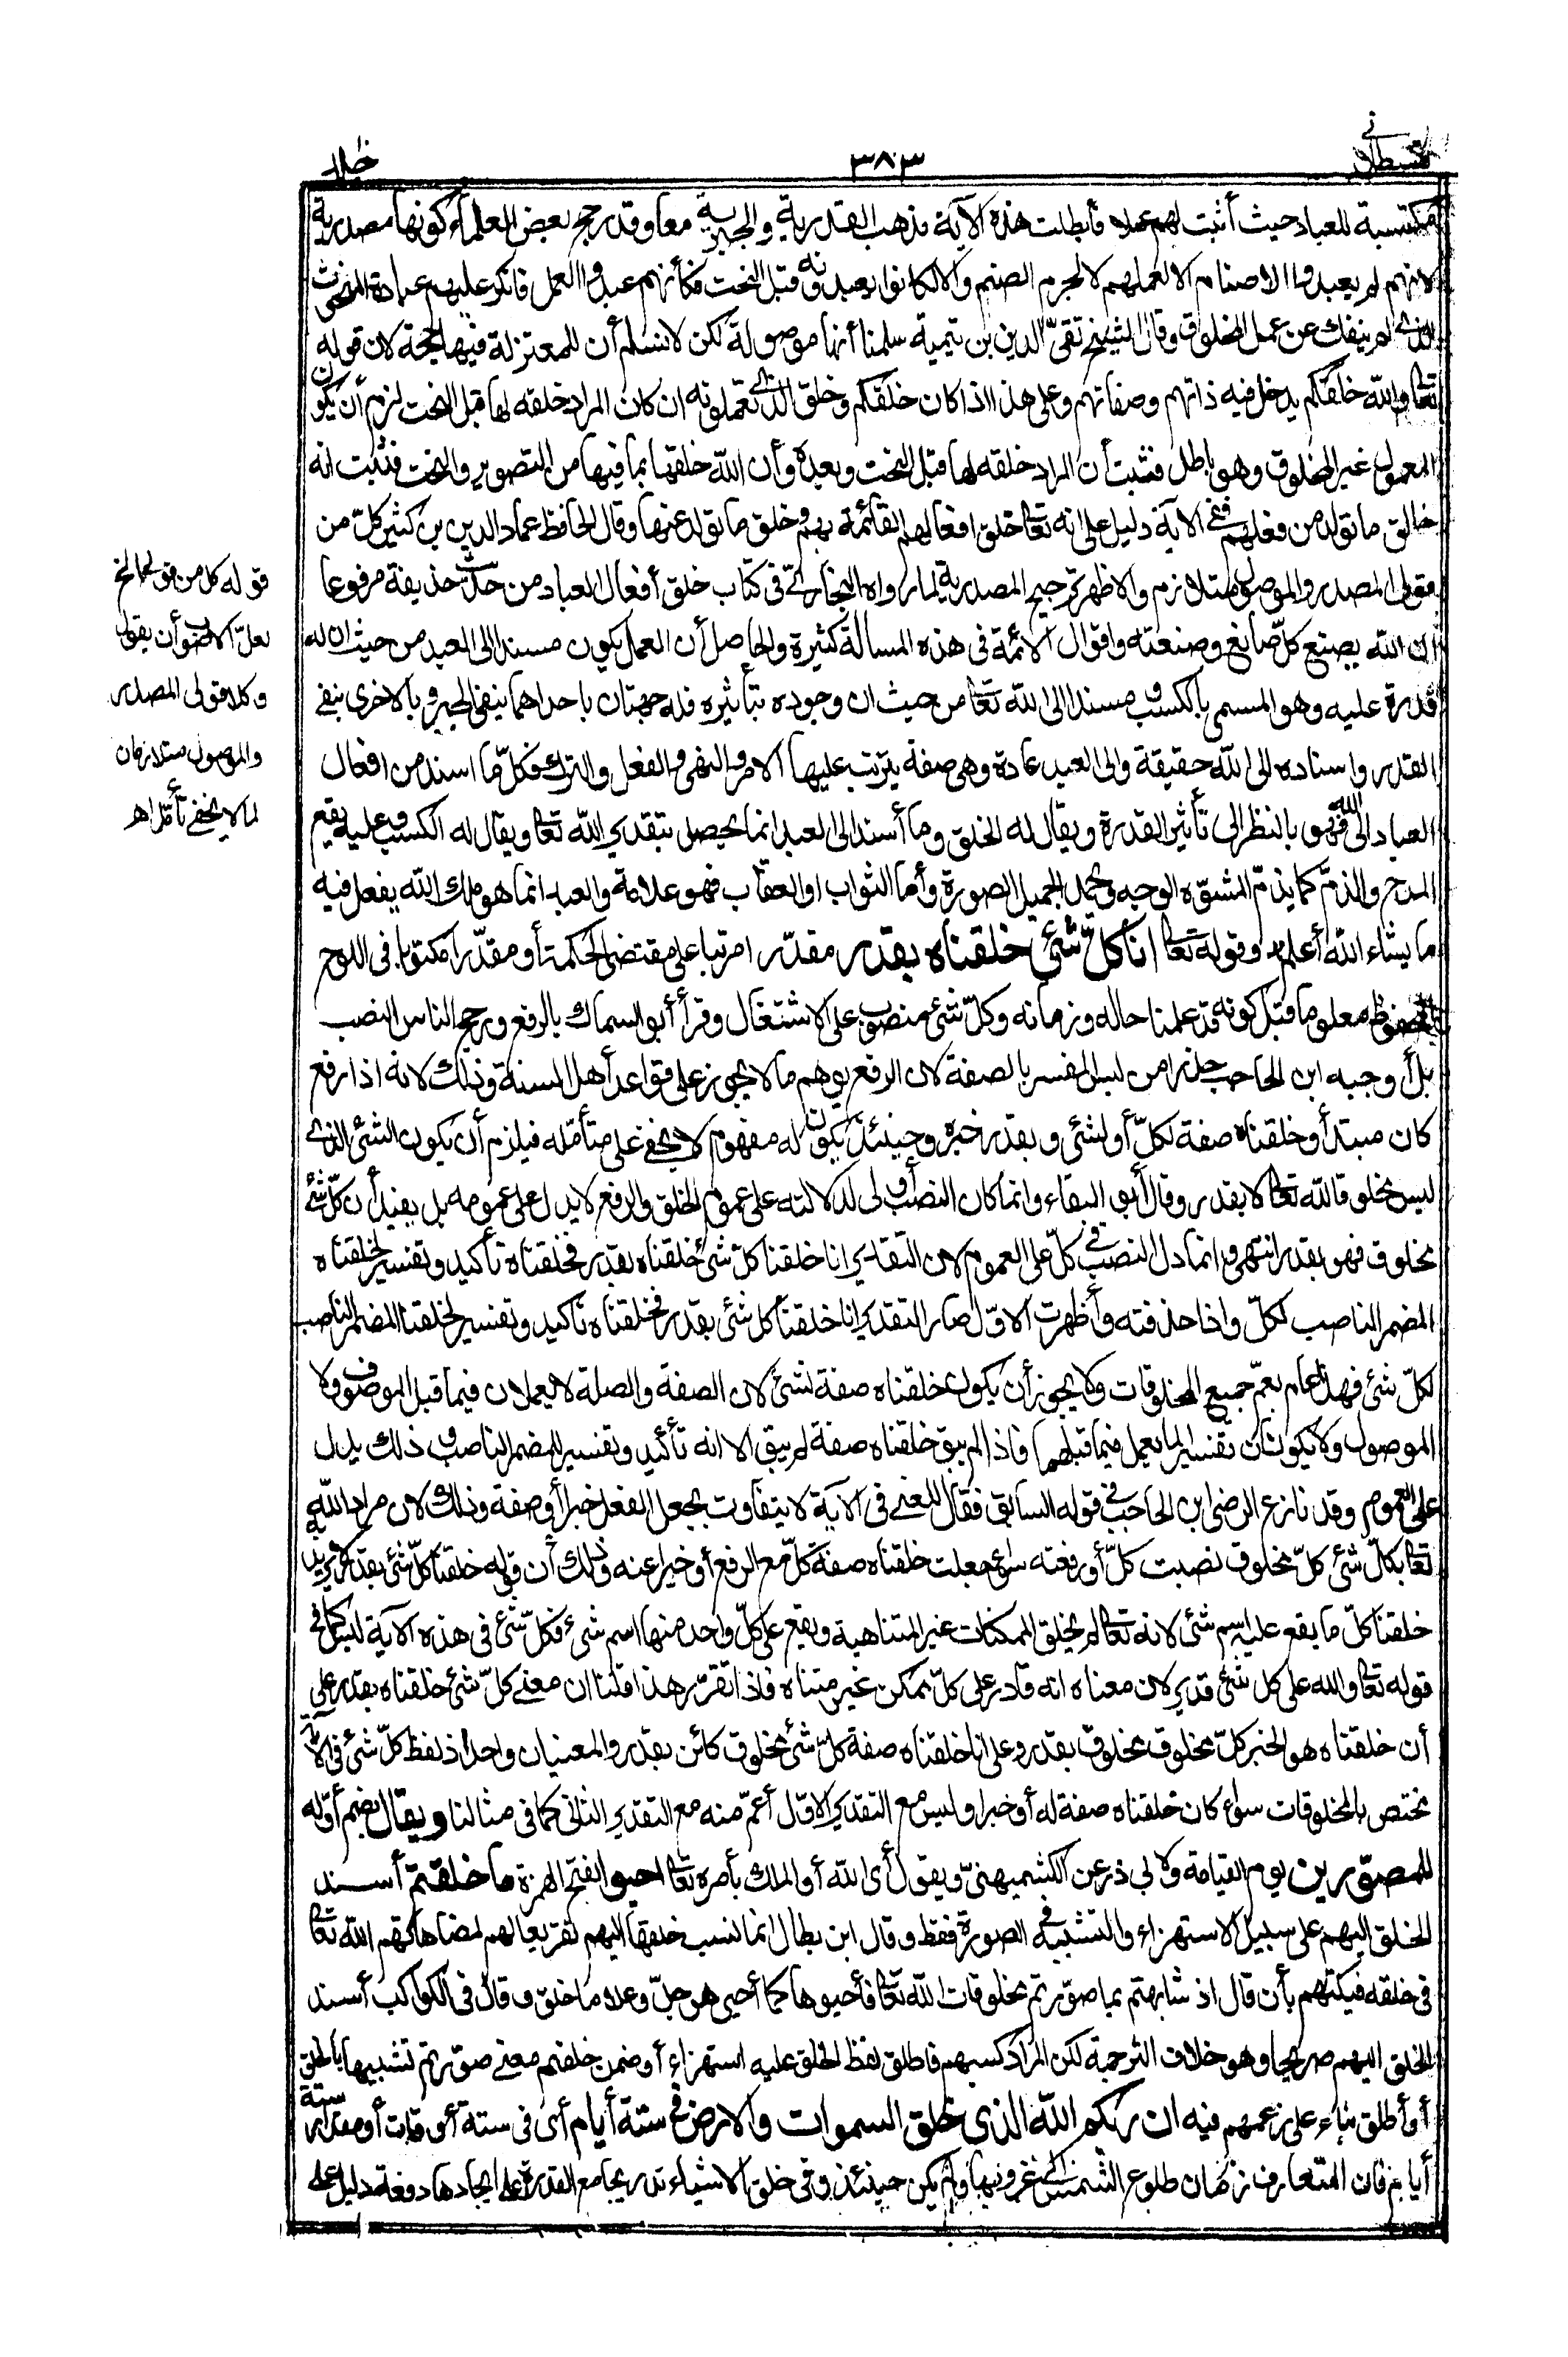 قسطلانى
٣٨٣
مكتسبة للعباد حيث أثبت لهم عملا فأبطلت هذه الآية مذهب القدرية والجبرية معا وقد رجح بعض العلماء كونها مصدرية
لانهم لم يعبدوا الاصنام الا لعملهم لا لجرم الصنم والا لكانوا يعبدونه قبل النحت فكأنهم عبدوا العمل فانكر عليهم عبادة المنحوت
الذى لم ينفك عن عمل المخلوق وقال الشيخ تقىّ الدين بن تيمية سلمنا أنها موصولة لكن لا نسلم أن للمعتزلة فيها حجة لان قوله
تعا والله خلقكم يدخل فيه ذاتهم وصفاتهم وعلى هذا اذا كان خلقكم وخلق الذى تعملونه ان كان المراد خلقه لها قبل النحت لزم أن يكون
المعمول غير المخلوق وهو باطل فثبت أن المراد خلقه لها قبل النحت وبعده وأن الله خلقها بما فيها من التصوير والنحت فثبت انه
خالق ما تولد من فعلهم ففى الآية دليل على انه تعا خلق افعالهم القائمة بهم وخلق ما تولد عنها وقال الحافظ عماد الدين بن كثير كلّ من
قولى المصدر والموصول متلازم والاظهر ترجيح المصدرية لما رواه البخارى فى كتاب خلق أفعال العباد من حديث حذيفة مرفوعا
ان الله يصنع كلّ صانع وصنعته واقوال الائمة فى هذه المسألة كثيرة والحاصل أن العمل يكون مسندا الى العبد من حيث ان له
قدرة عليه وهو المسمى بالكسب ومسندا الى الله تعا من حيث ان وجوده بتأثيره فله جهتان باحداهما ينفى الجبر وبالاخرى ينفى
القدر واسناده الى الله حقيقة والى العبد عادة وهى صفة يترتب عليها الامر والنهى والفعل والترك فكلّ ما اسند من افعال
العباد الى الله فهو بالنظر الى تأثير القدرة ويقال له الخلق وما أسند الى العبد انما يحصل بتقدير الله تعا ويقال له الكسب وعليه يقع
المدح والذمّ كما يذمّ المشوّه الوجه ويحمد الجميل الصورة وأما الثواب او العقاب فهو علامة والعبد انما هو ملك الله يفعل فيه
ما يشاء الله أعلم وقوله تعا انا كلّ شئ خلقناه بقدر مقدّرا مرتبا على مقتضى الحكمة أو مقدّرا مكتوبا فى اللوح
المحفوظ معلوما قبل كونه قد علمنا حاله وزمانه وكلّ شئ منصوب على الاشتغال وقرأ أبو السماك بالرفع ورجح الناس النصب
بل أوجبه ابن الحاجب حذرا من لبس المفسر بالصفة لان الرفع يوهم ما لا يجوز على قواعد أهل السنة وذلك لانه اذا رفع
كان مبتدأ وخلقناه صفة لكلّ أو لشئ وبقدر خبره وحينئذ يكون له مفهوم لا يخفى على متأمّله فيلزم أن يكون الشئ الذى
ليس مخلوقا لله تعا لا بقدر وقال أبو البقاء وانما كان النصب أولى لدلالته على عموم الخلق والرفع لا يدل على عمومه بل يفيد أن كلّ شئ
مخلوق فهو بقدر انتهى وانما دل النصب فى كلّ على العموم لان التقدير انا خلقنا كلّ شئ خلقناه بقدر فخلقناه تأكيد وتفسير لخلقناه
المضمر الناصب لكلّ واذا حذفته وأظهرت الاوّل صار التقدير انا خلقنا كل شئ بقدر فخلقناه تأكيد وتفسير لخلقنا المضمر الناصب
لكلّ شئ فهذا عام يعمّ جميع المخلوقات ولا يجوز أن يكون خلقناه صفة لشئ لان الصفة والصلة لا يعملان فيما قبل الموصوف ولا
الموصول ولا يكونان تفسيرا لما يعمل فيما قبلهما فاذا لم يبق خلقناه صفة لم يبق الا انه تأكيد وتفسير للمضمر الناصب وذلك يدل
على العموم وقد نازع الرضى ابن الحاجب فى قوله السابق فقال المعنى فى الآية لا يتفاوت بجعل الفعل خبرا أو صفة وذلك لان مراد الله
تعا بكلّ شئ كلّ مخلوق نصبت كلّ أو رفعته سواء جعلت خلقناه صفة كلّ مع الرفع أو خبرا عنه وذلك أن قوله خلقنا كلّ شئ بقدر لا يريد به
خلقنا كلّ ما يقع عليه اسم شئ لانه تعا لم يخلق الممكنات غير المتناهية ويقع على كلّ واحد منها اسم شئ فكلّ شئ فى هذه الآية ليس كما فى
قوله تعا والله على كل شئ قدير لان معناه انه قادر على كلّ ممكن غير متناه فاذا تقرّر هذا قلنا ان معنى كلّ شئ خلقناه بقدر على
أن خلقناه هو الخبر كلّ مخلوق مخلوق بقدر وعلى أنا خلقناه صفة كلّ شئ مخلوق كائن بقدر والمعنيان واحد اذ لفظ كلّ شئ فى الآية
مختص بالمخلوقات سواء كان خلقناه صفة له أو خبرا وليس مع التقدير الاوّل أعمّ منه مع التقدير الثانى كما فى مثالنا ويقال بضم أوّله
للمصوّرين يوم القيامة ولابى ذر عن الكشميهنىّ ويقول أى الله أو الملك بأمره تعا احيوا بفتح الهمزة ما خلقتم أسند
الخلق اليهم على سبيل الاستهزاء والتشبيه فى الصورة فقط وقال ابن بطال انما نسب خلقها اليهم تقريعا لهم لمضاهاتهم الله تعا
فى خلقه فبكتهم بأن قال اذ شابهتم بما صوّرتم مخلوقات الله تعا فأحيوها كما أحيى هو جلّ وعلا ما خلق وقال فى الكواكب أسند
الخلق اليهم صريحا وهو خلاف الترجمة لكن المراد كسبهم فاطلق لفظ الخلق عليه استهزاء أو ضمن خلقتم معنى صوّرتم تشبيها بالخلق
أو أطلق بناء على زعمهم فيه ان ربكم الله الذى خلق السموات والارض فى ستة أيام أى فى ستة أوقات أو مقدار ستة
أيام فان المتعارف زمان طلوع الشمس الى غروبها ولم يكن حينئذ وفى خلق الاشياء تدريجا مع القدرة على ايجادها دفعة دليل على
قوله كل من قولى الخ
لعلّ الاصوب أن يقول
وكلا قولى المصدر
والموصول متلازمان
لما لا يخفى تأمّل اه